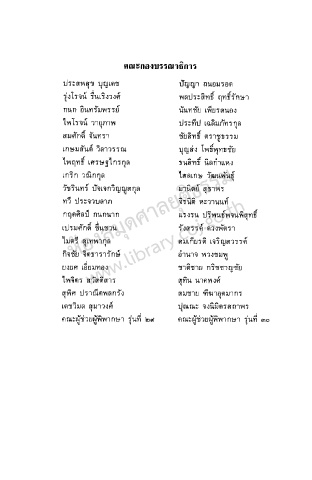 คณะกองบรรณาธิการ
ประสพสุข บุญเดช
รุ่งโรจน์ รื่นเริงวงศ์
ทนก อินทรัมพรรย์
ไพโรจน์ วายุภาพ
สมศักดิ์ จันทรา
เกษมสันต์ วิลาวรรณ
ไพฤทธิ์ เศรษฐไกรกุล
เกริก วณิกกุล
วัชรินทร์ ปัจเจกวิญญูสกุล
ทวี ประจวบลาภ
กฤตศิลป์ กนกนาก
เปรมศักดิ์ ชื่นชวน
ไมตรี สุเทพากุล
กิจชัย จิตธารารักษ์
ยงยศ เอี่ยมทอง
ไพจิตร สวัสดิสาร
สุพิศ ปราณีตพลกรัง
เดชวิมล สุมาวงศ์
คณะผู้ช่วยผู้พิพากษา รุ่นที่ ๒๙
ปัญญา ถนอมรอด
พลประสิทธิ์ ฤทธิ์รักษา
นันทชัย เพียรสนอง
ประทีป เฉลิมภัทรกุล
ชัยสิทธิ์ ตราชูธรรม
บุญส่ง โพธิ์พุทธชัย
ธนสิทธิ์ นิลกำแหง
ไสลเกษ วัฒนพันธุ์
มานิตย์ สุธาพร
จิรนิติ หะวานนท์
แรงรณ ปริพนธ์พจนพิสุทธิ์
รังสรรค์ ดวงพัตรา
สมเกียรติ เจริญสวรรค์
อำนาจ พวงชมพู
ชาติชาย กริชชาญชัย
สุทิน นาคพงศ์
สมชาย ฑีฆาอุตมากร
ปุณณะ จงนิมิตรสถาพร
คณะผู้ช่วยผู้พิพากษา รุ่นที่ ๓๐